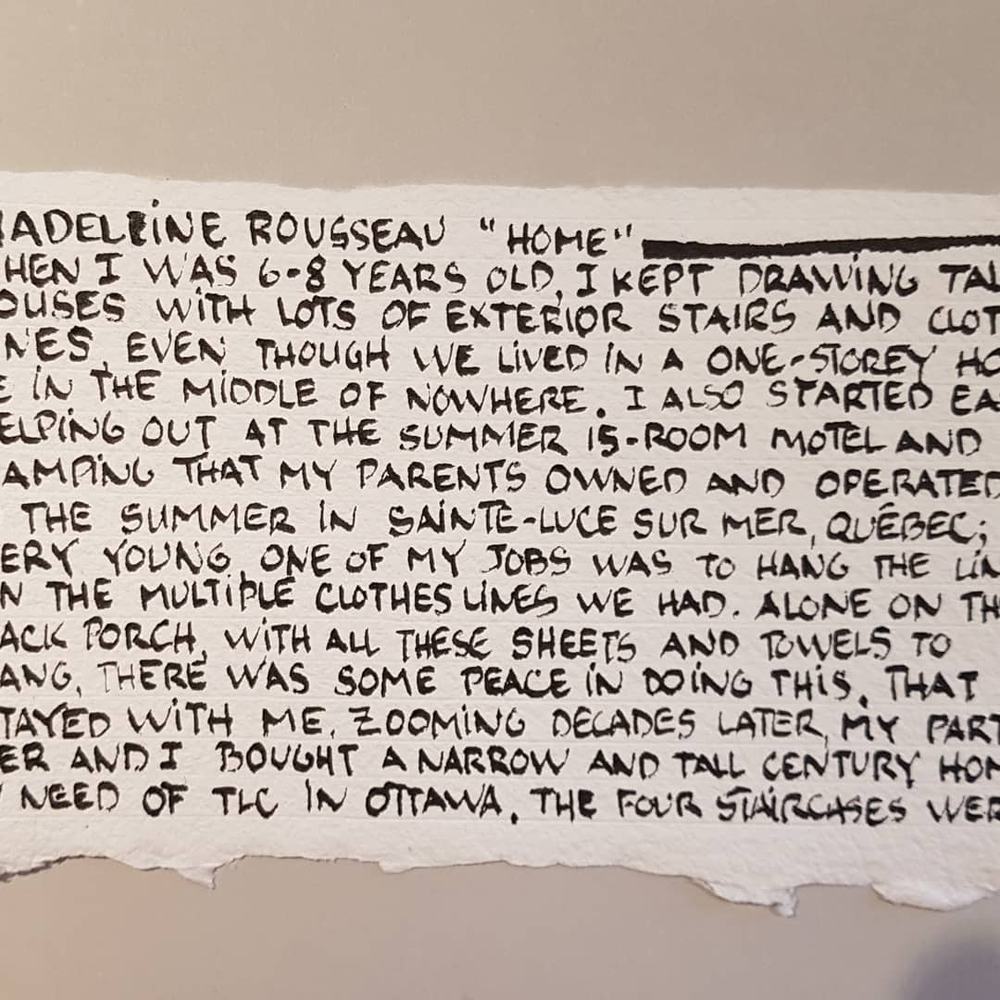 MADELEINE ROUSSEAU "HOME"
HEN I WAS 6-8 YEARS OLD, I KEPT DRAWING TAL
OUSES WITH LOTS OF EXTERIOR STAIRS AND CLOT
NES, EVEN THOUGH WE LIVED IN A ONE-STOREY HO
E IN THE MIDDLE OF NOWHERE. I ALSO STARTED EA
ELPING OUT AT THE SUMMER 15-ROOM MOTEL AND
AMPING THAT MY PARENTS OWNED AND OPERATED
THE SUMMER IN SAINTE-LUCE SUR MER, QUÉBEC;
ERY YOUNG, ONE OF MY JOBS WAS TO HANG THE LIN
N THE MULTIPLE CLOTHES LINES WE HAD. ALONE ON TH
ACK PORCH, WITH ALL THESE SHEETS AND TOWELS TO
ANG, THERE WAS SOME PEACE IN DOING THIS, THAT
TAYED WITH ME. ZOOMING DECADES LATER, MY PART
ER AND I BOUGHT A NARROW AND TALL CENTURY HOM
NEED OF TLC IN OTTAWA. THE FOUR STAIRCASES WER